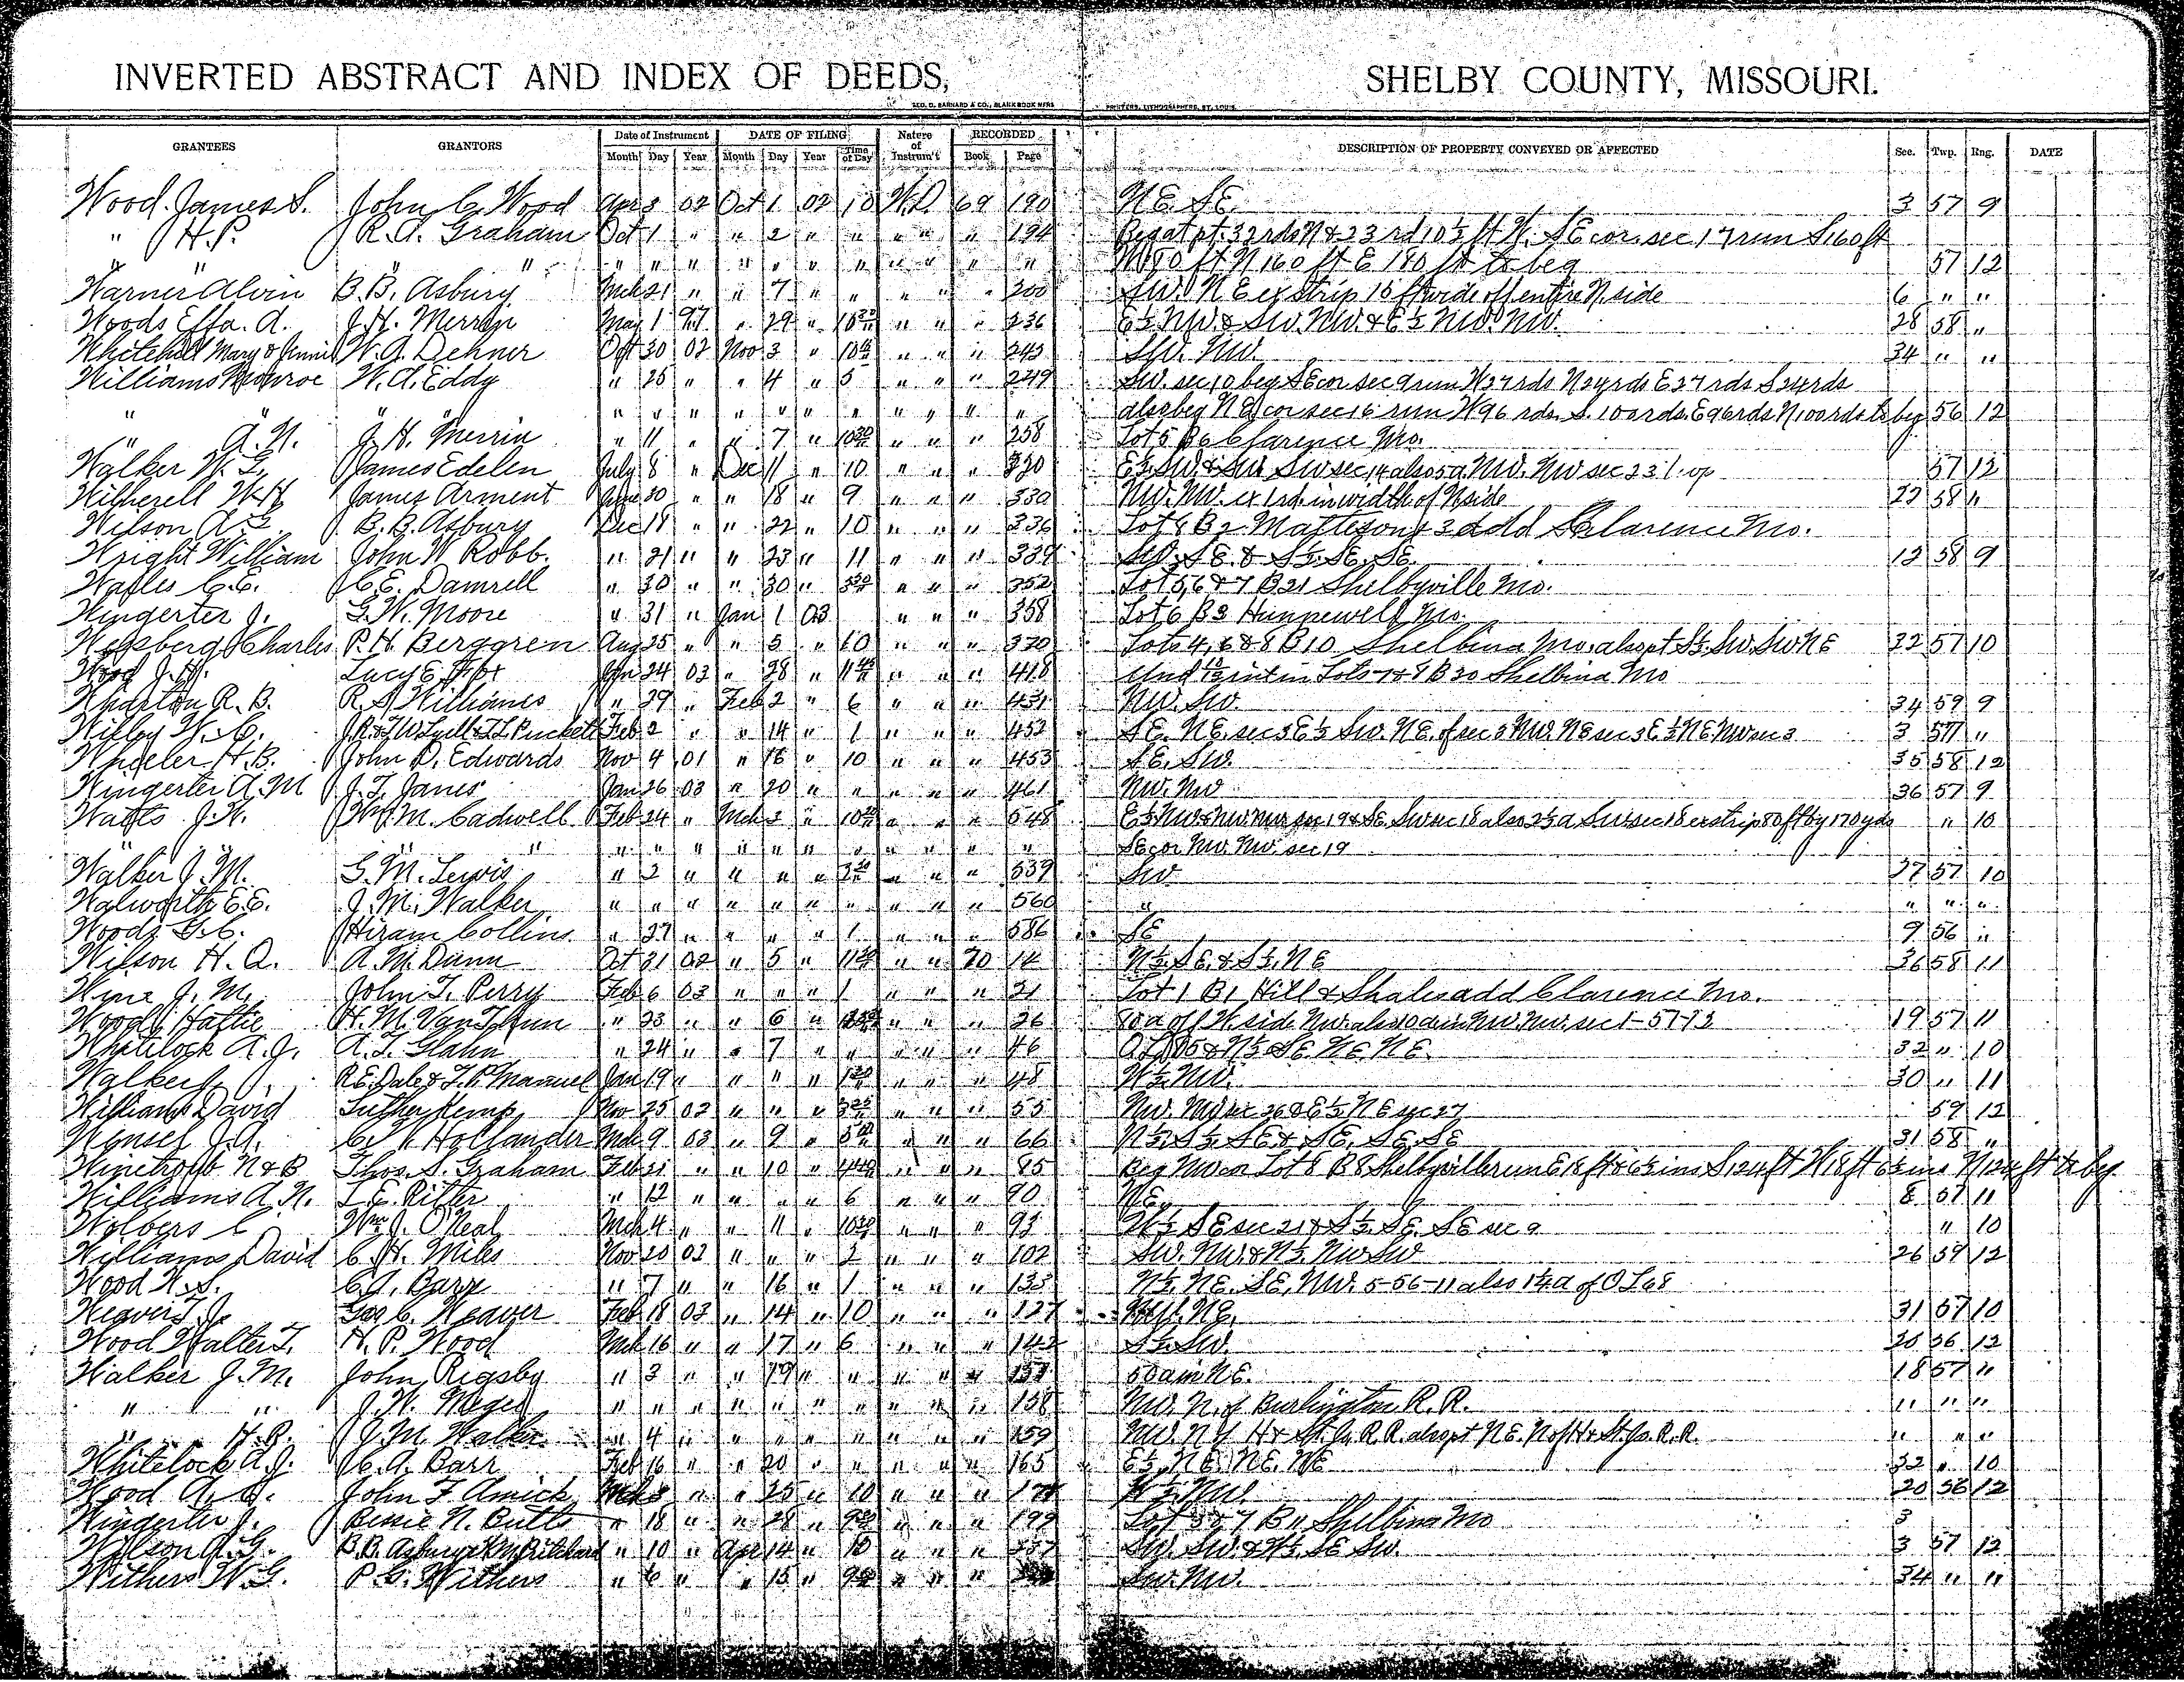 INVERTED ABSTRACT AND INDEX OF DEEDS, SHELBY COUNTY, MISSOURI.
GEO. D. BARNARD & CO., BLANK BOOK MFRS PRINTERS, LITHOGRAPHERS, ST. LOUIS.
GRANTEES GRANTORS Date of Instrument DATE OF FILING Nature of Instrum't RECORDED DESCRIPTION OF PROPERTY CONVEYED OR AFFECTED Sec. Twp. Rng. DATE
Month Day Year Month Day Year Time of Day Book Page
Wood James S. John C. Wood Apr 3 02 Oct 1 02 10 W.D. 69 190 N.E. S.E. 3 57 9
" H.P. R.A. Graham Oct 1 " " 2 " " " " " 194 Beg at pt. 32 rds N & 23 rd 10½ ft W. SE cor. sec 17 run S 160 ft
" " " " " " " " " " " " " " " W 180 ft N 160 ft E 180 ft to beg 57 12
Warner Alvin B.B. Asbury Mch 21 " " 7 " " " " " 200 SW. NE ex strip 16 ft wide off entire N. side 6 " "
Woods Effa. A. J.H. Merrin May 1 97 " 29 " 10 30 " " " 236 E½ NW. & SW. NW. & E½ NW. NW. 28 58 "
Whitehall Mary & Annie W.A. Dehner Oct 30 02 Nov 3 " " " " 243 SW. NW. 34 " "
Williams Monroe W.A. Eddy " 25 " " 4 " 5 " " " 249 SW. sec 10 beg SE cor sec 9 run W 27 rds N 24 rds E 27 rds S 24 rds
" " " " " " " " " " " " " also beg NE cor sec 16 run W 96 rds. S. 100 rds. E 96 rds N 100 rds to beg 56 12
" A.N. J.H. Merrin " 11 " " 7 " 10 30 " " " 258 Lot 5 B 6 Clarence Mo.
Walker W.G. James Edelen July 8 " Dec 11 " 10 " " " 320 E½ SW. & SW. SW sec 14 also 5 a NW. NW sec 23 57 12
Witherell W.H. James Arment June 30 " " 18 " 9 " " " 330 NW. NW. ex 1 rd. in width of N side 22 58 "
Wilson A.G. B.B. Asbury Dec 18 " " 22 " 10 " " " 336 Lot 8 B 2 Mattesons 3 add Clarence Mo.
Wright William John W Robb. " 21 " " 23 " 11 " " " 339 SW. SE. & S½. SE. SE. 12 58 9
Wailes C.E. C.E. Damrell " 30 " " 30 " 3 30 " " " 352 Lot 5, 6 & 7 B 21 Shelbyville Mo.
Wingerter J. G.W. Moore " 31 " Jan 1 03 " " " 358 Lot 6 B 3 Hunnewell Mo.
Charles P.H. Berggren Aug 25 " " 5 " 10 " " " 370 Lots 4, 6 & 8 B 10 Shelbina Mo. also pt S½. SW. SW NE 22 57 10
Wood J.H. Lucy E. Jan 24 03 " 28 " 11 " " " 418 Und int in Lots 7 & 8 B 20 Shelbina Mo
Wharton R.B. R.S. Williams " 29 " Feb 2 " 6 " " " 431 NW. SW. 34 59 9
Wilby W.C. J.R. & T.W. Lyell & T.L. Puckett Feb 2 " " 14 " 1 " " " 452 SE. NE. sec 3 E½ SW. NE. of sec 3 NW. NE sec 3 E½ NE. NW sec 3 3 57 "
Wheeler H.B. John D. Edwards Nov 4 01 " 16 " 10 " " " 453 SE. SW. 35 58 12
Wingerter A.M J.T. Janes Jan 26 03 " 20 " " " " " 461 NW. NW 36 57 9
Watts J.W. Wm M. Cadwell Feb 24 " Mch 2 " 10 " " " 548 E½ NW & NW. NW sec 19 & SE. SW sec 18 also 2½ a SW sec 18 ex strip 80 ft by 170 yds " 10
" " " " " " " " " " " " " SE cor NW. NW. sec 19
Walker J.M. G.M. Lewis " 2 " " " " 3 30 " " " 559 SW 27 57 10
Walworth E.E. J.M. Walker " " " " " " " " " " 560 " " " "
Woods G.C. Hiram Collins " 27 " " " " 1 " " " 586 SE 9 56 "
Wilson H.A. A.M. Dunn Oct 31 02 " 5 " 11 " " 70 14 N½. SE. & S½. NE 36 58 11
J.M. John T. Perry Feb 6 03 " " " 1 " " " 21 Lot 1 B 1 Hill & Shales add Clarence Mo.
Wood Hattie H.M. VanThun " 23 " " 6 " " " " 26 80 a off W. side NW. also 10 a in NW. NW. sec 1-57-13 19 57 11
Whitelock A.J. A.T. Glahn " 24 " " 7 " " " " " 46 & N½. SE. NE. NE. 32 " 10
Walker J. R.E. Dale & T.P. Manuel Jan 19 " " " " 1 30 " " " 48 W½. NW. 30 " 11
Williams David Luther Kemp Nov 25 02 " " " " " " 55 NW. NW sec 26 & E½ NE sec 27 59 12
Wensel J.A. C. Hollander Mch 9 03 " 9 " " " " 66 N½. S½. SE & SE. SE. SE 31 58 "
N & B Thos. S. Graham Feb 21 " " 10 " " " " 85 Beg NW cor Lot 8 B 8 Shelbyville run E 18 ft & 6½ ins S 124 ft W 18 ft 6½ ins N 124 ft to beg
Williams A.N. L.E. Ritter " 12 " " " " 6 " " " 90 NE. 8 57 11
Wolvers C Wm J. O'Neal Mch 4 " " 11 " 10 30 " " " 93 N½ SE sec 21 & S½. SE. SE sec 9 " 10
Williams David C.H. Miles Nov 20 02 " " " 2 " " " 102 SW. NW. & N½. NW SW 26 59 12
Wood W.S. C.A. Barr " 7 " " 16 " 1 " " " 133 N½. NE. SE. NW. 5-56-11 also 1¼ a of OL 68
Weaver T.J. Geo C. Weaver Feb 18 03 " 14 " 10 " " " 127 NW. NE. 31 57 10
Wood Walter T. H.P. Wood Mch 16 " " 17 " 6 " " " 142 S½. SW. 20 56 12
Walker J.M. John Rigsby " 3 " " 19 " " " " " 50 a in NE. 18 57 "
" " J.W. " " " " " " " " " " 158 NW. N. of Burlington R.R. " " "
" H.B. J.M. Walker " 4 " " " " " " " " 159 NW. N of H & St. Jo. R.R. also pt NE. N of H & St. Jo. R.R. " " "
Whitelock A.J. C.A. Barr Feb 16 " " 20 " " " " " 165 E½. NE. NE. NE 32 " 10
Wood A. John F Amick Mch 3 " " 25 " 10 " " " W½. NW. 20 56 12
Wingerter J. Bessie N. Butts " 18 " " 28 " " " " 199 Lot 3 & 7 B 11 Shelbina Mo 3
Wilson A.G. B.B. Asbury & " 10 " Apr 14 " 10 " " " SW. SW. & W½. SE SW. 3 57 12
Withers W.G. P.C. Withers " 6 " " 15 " " " " SW. NW. 34 " "